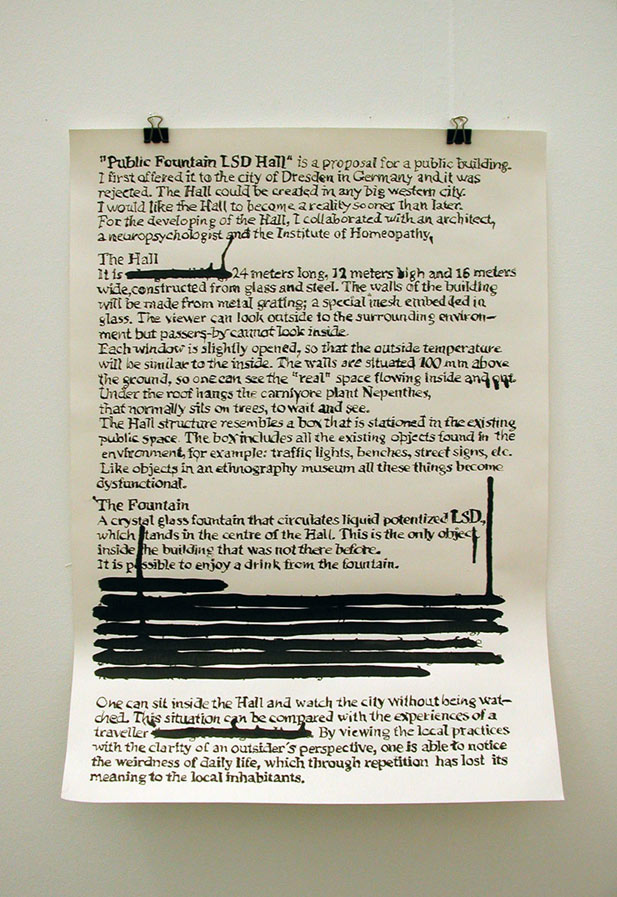 "Public Fountain LSD Hall" is a proposal for a public building.
I first offered it to the city of Dresden in Germany and it was
rejected. The Hall could be created in any big western city.
I would like the Hall to become a reality sooner than later.
For the developing of the Hall, I collaborated with an architect,
a neuropsychologist and the Institute of Homeopathy.
The Hall
It is 24 meters long, 12 meters high and 16 meters
wide, constructed from glass and steel. The walls of the building
will be made from metal grating; a special mesh embedded in
glass. The viewer can look outside to the surrounding environ-
ment but passers-by cannot look inside.
Each window is slightly opened, so that the outside temperature
will be similar to the inside. The walls are situated 100 mm above
the ground, so one can see the "real" space flowing inside and out.
Under the roof hangs the carnivore plant Nepenthes,
that normally sits on trees, to wait and see.
The Hall structure resembles a box that is stationed in the existing
public space. The box includes all the existing objects found in the
environment, for example: traffic lights, benches, street signs, etc.
Like objects in an ethnography museum all these things become
dysfunctional.
The Fountain
A crystal glass fountain that circulates liquid potentized LSD,
which stands in the centre of the Hall. This is the only object
inside the building that was not there before.
It is possible to enjoy a drink from the fountain.
One can sit inside the Hall and watch the city without being wat-
ched. This situation can be compared with the experiences of a
traveller . By viewing the local practices
with the clarity of an outsider's perspective, one is able to notice
the weirdness of daily life, which through repetition has lost its
meaning to the local inhabitants.